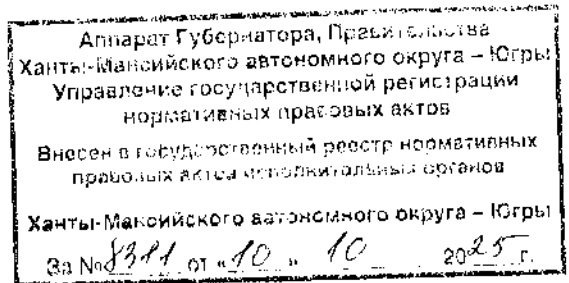 Аппарат Губернатора, Правительства
Ханты-Мансийского автономного округа – Югры
Управление государственной регистрации
нормативных правовых актов
Внесен в государственный реестр нормативных
правовых актов исполнительных органов
Ханты-Мансийского автономного округа – Югры
За № 8311 от «10» 10 2025 г.